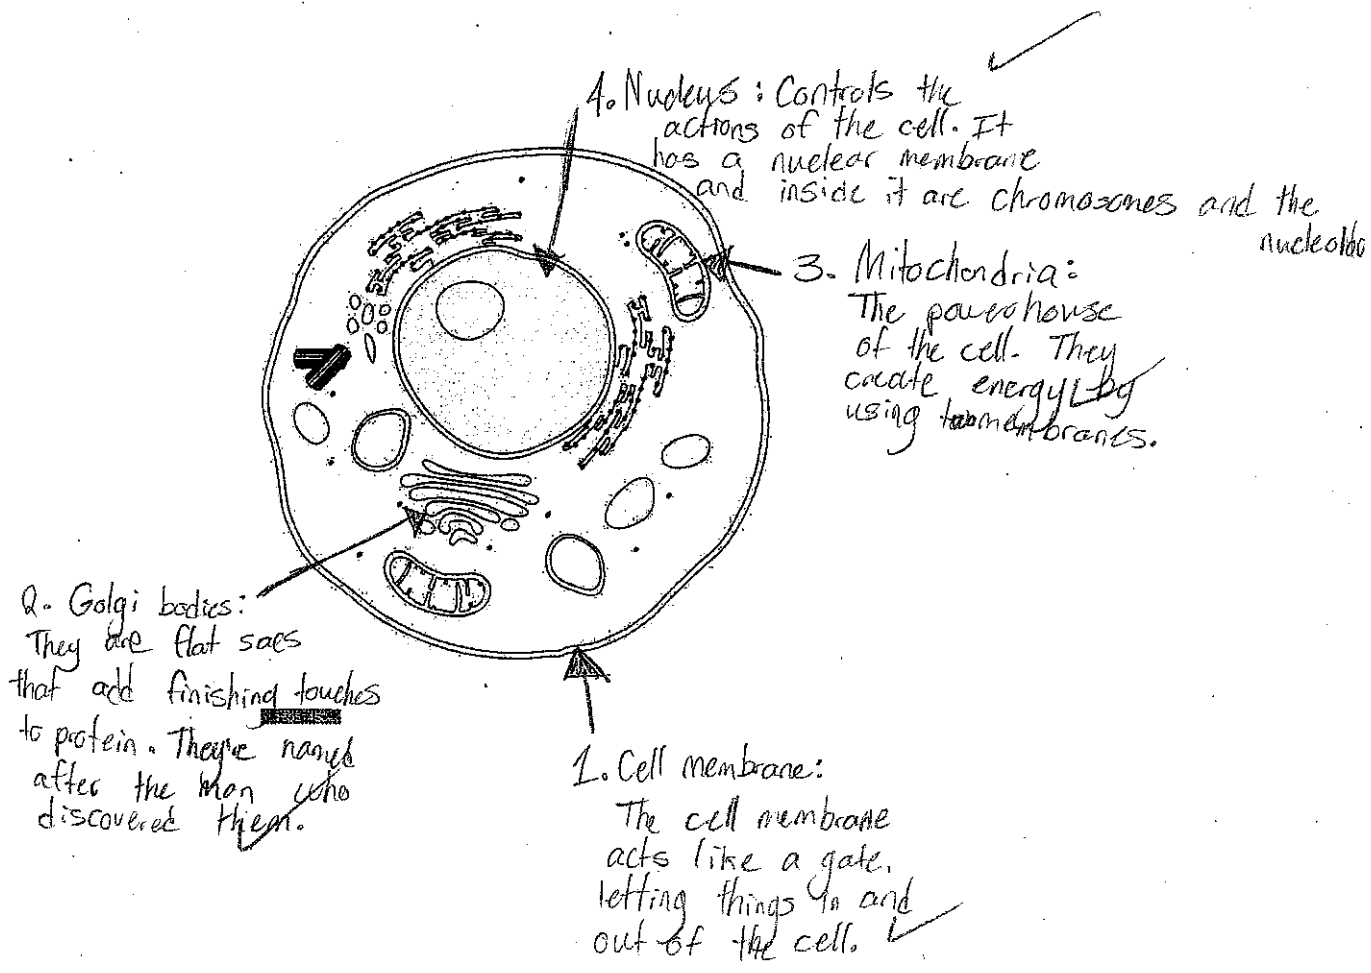 4. Nucleus : Controls the
actions of the cell. It
has a nuclear membrane
and inside it are chromosomes and the
3. Mitochondria:
The powerhouse
of the cell. They
create energy by
using two membranes.
2. Golgi bodies:
They are flat sacs
that add finishing touches
to protein. They're named
after the man who
discovered them.
1. Cell membrane:
The cell membrane
acts like a gate,
letting things in and
out of the cell.